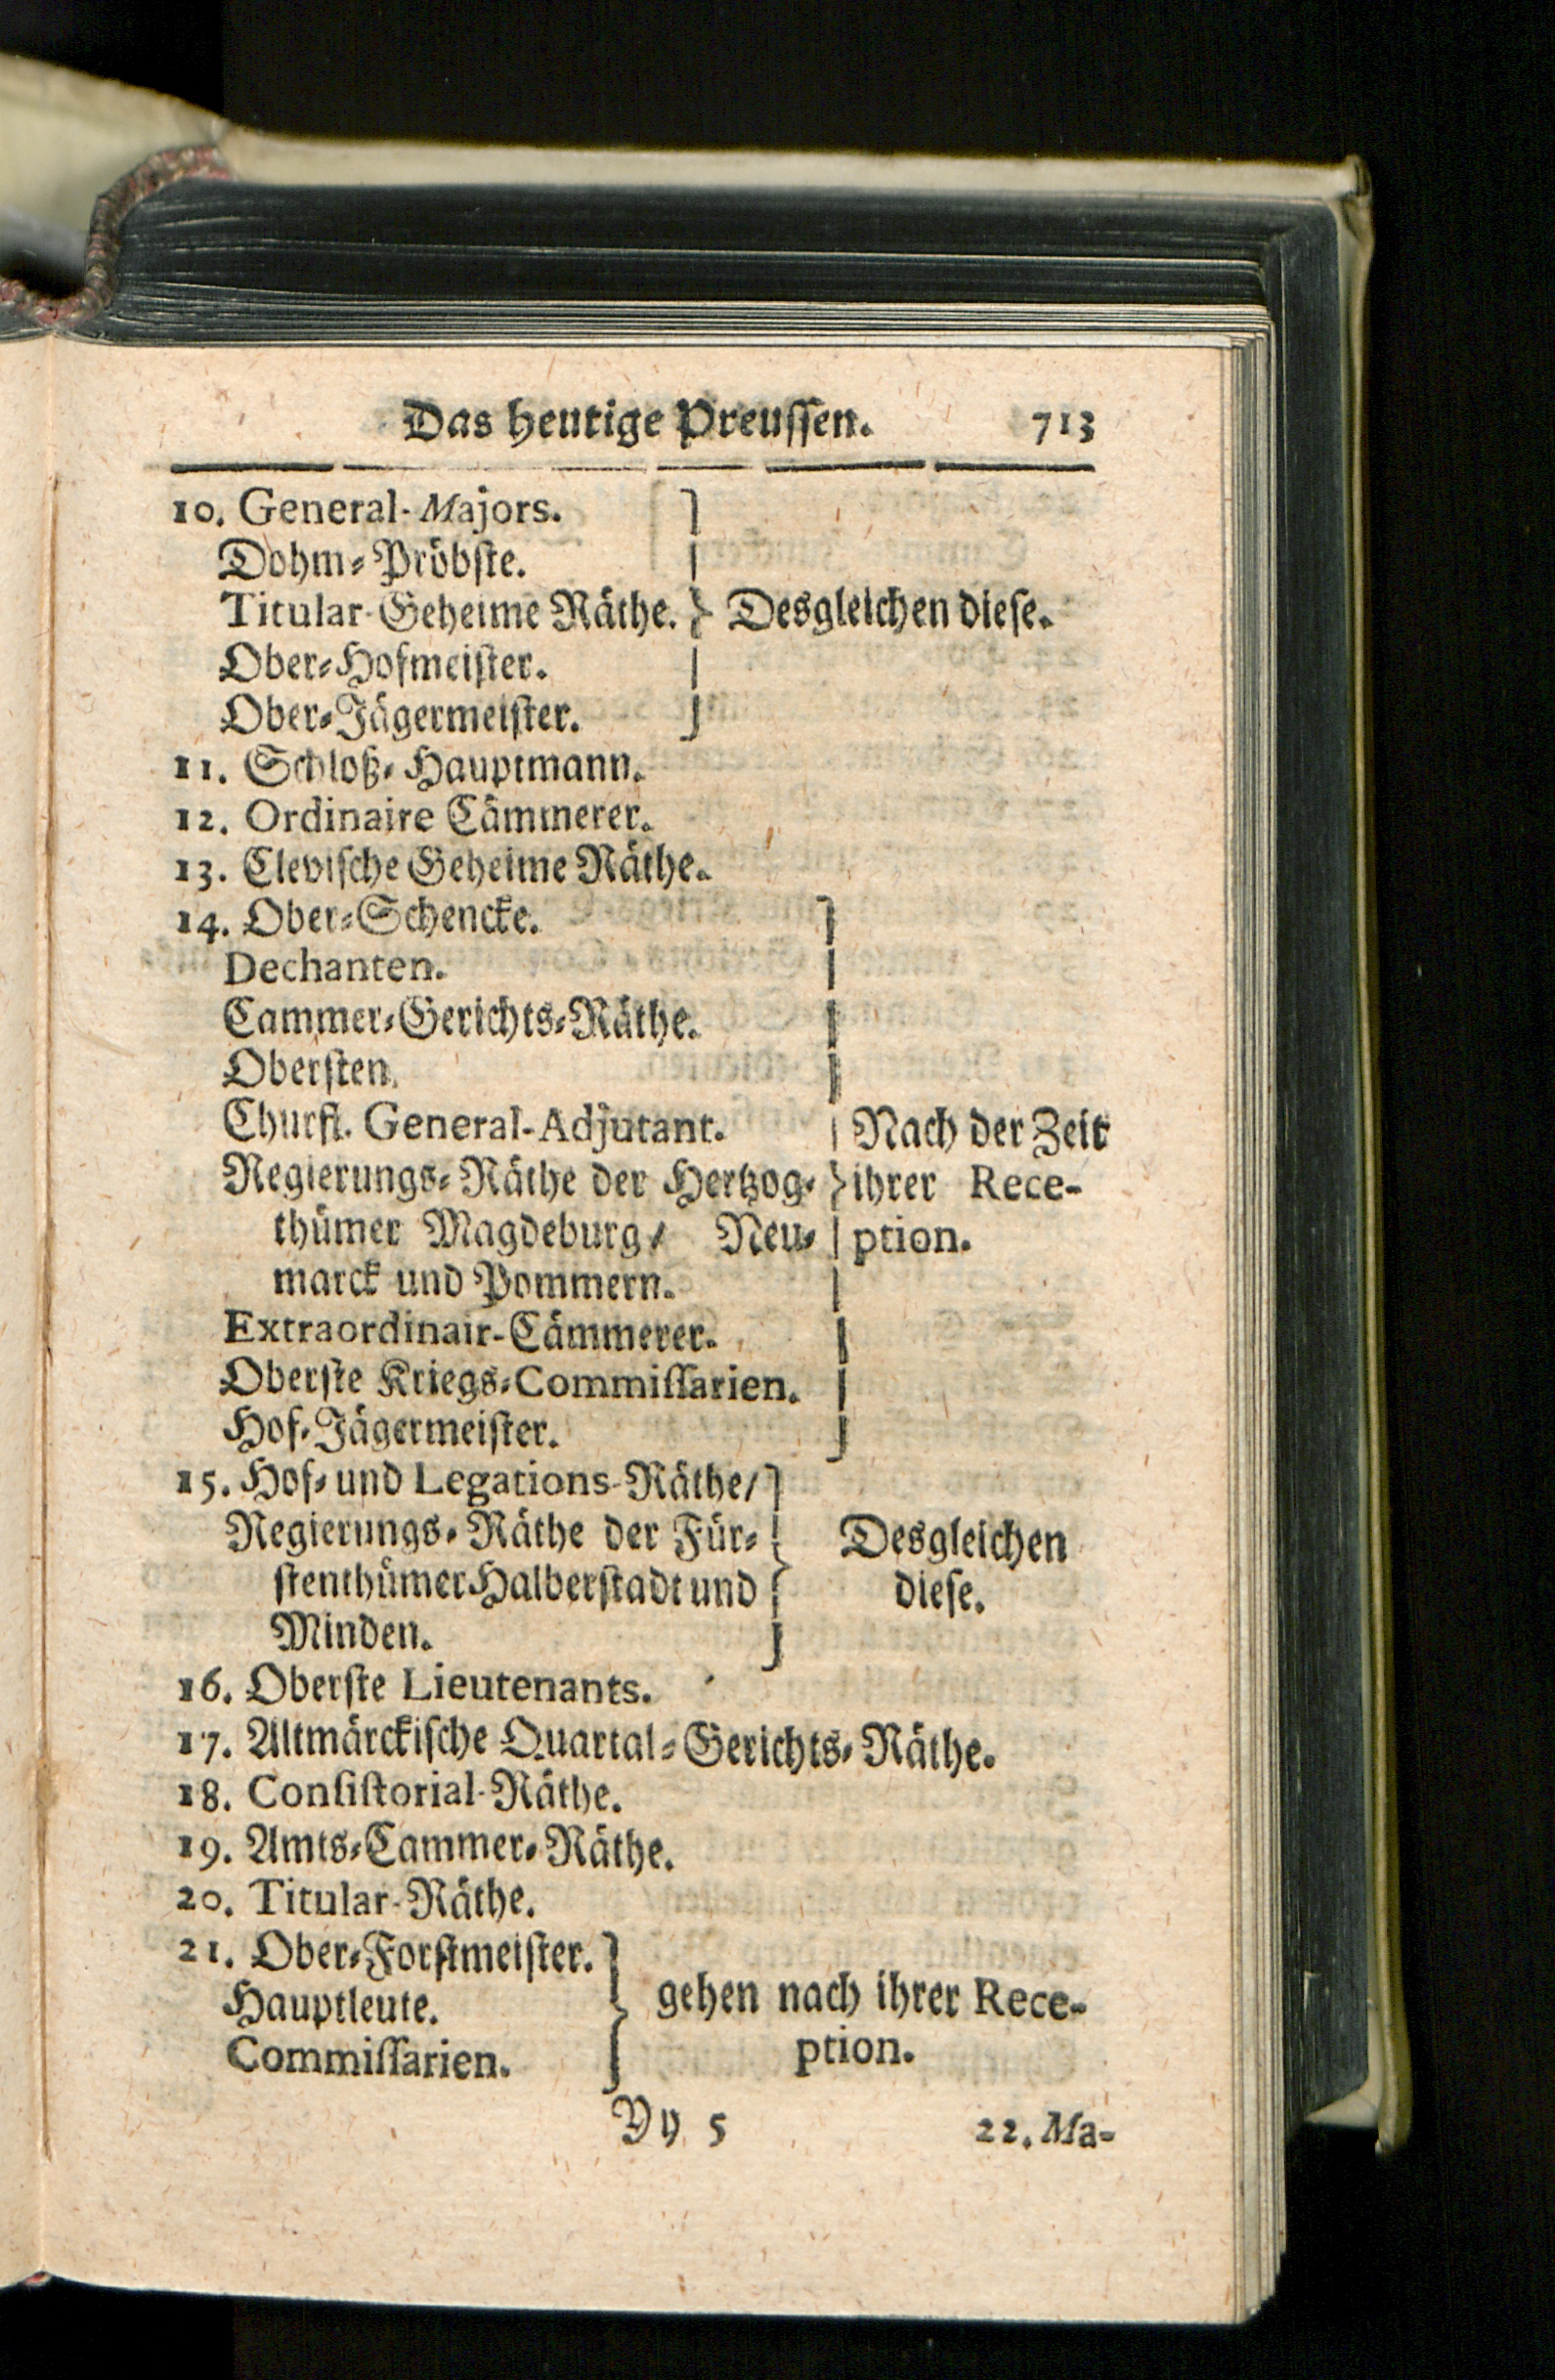 Das heutige Preuſſen. 713
10. General-Majors.
Dohm-Pröbſte.
Titular-Geheime Räthe. } Desgleichen dieſe.
Ober-Hofmeiſter.
Ober-Jägermeiſter.
11. Schloß-Hauptmann.
12. Ordinaire Cämmerer.
13. Cleviſche Geheime Räthe.
14. Ober-Schencke.
Dechanten.
Cammer-Gerichts-Räthe.
Oberſten.
Churfl. General-Adjutant.
Regierungs-Räthe der Hertzog-
thümer Magdeburg/ Neu-
marck und Pommern.
Extraordinair-Cämmerer.
Oberſte Kriegs-Commiſſarien.
Hof-Jägermeiſter.
Nach der Zeit
ihrer Rece-
ption.
15. Hof- und Legations-Räthe/
Regierungs-Räthe der Für-
ſtenthümer Halberſtadt und
Minden.
Desgleichen
dieſe.
16. Oberſte Lieutenants.
17. Altmärckiſche Quartal-Gerichts-Räthe.
18. Conſiſtorial-Räthe.
19. Amts-Cammer-Räthe.
20. Titular-Räthe.
21. Ober-Forſtmeiſter.
Hauptleute.
Commiſſarien.
gehen nach ihrer Rece-
ption.
Yy 5 22. Ma-